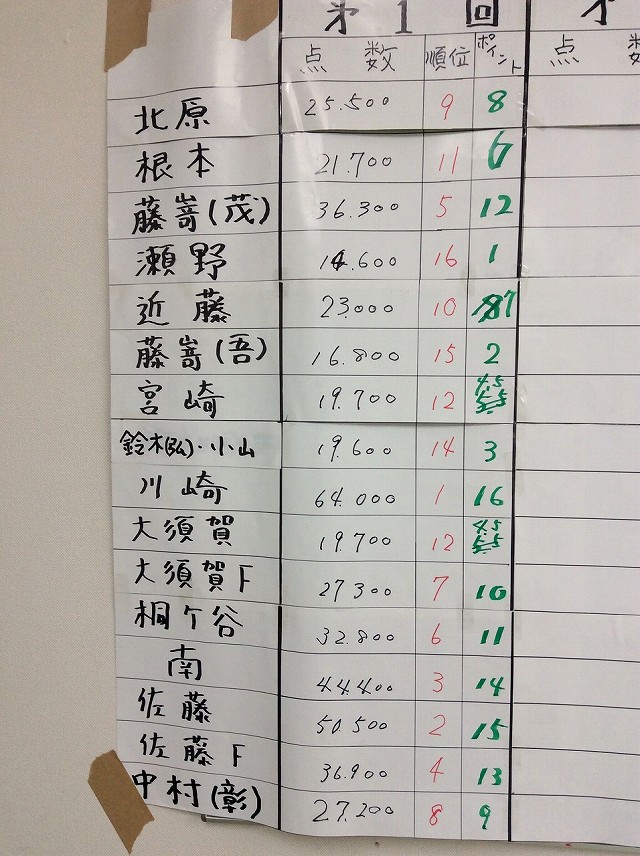 第1回
点 数 順位 ポイント 点 数
北原 25.500 9 8
根本 21.700 11 6
藤嵜(茂) 36.300 5 12
瀬野 14.600 16 1
近藤 23.000 10 7
藤嵜(吾) 16.800 15 2
宮崎 19.700 12 4.5
鈴木(弘)・小山 19.600 14 3
川崎 64.000 1 16
大須賀 19.700 12 4.5
大須賀F 27300 7 10
桐ケ谷 32.800 6 11
南 44.400 3 14
佐藤 50.500 2 15
佐藤F 36.900 4 13
中村(彰) 27.200 8 9